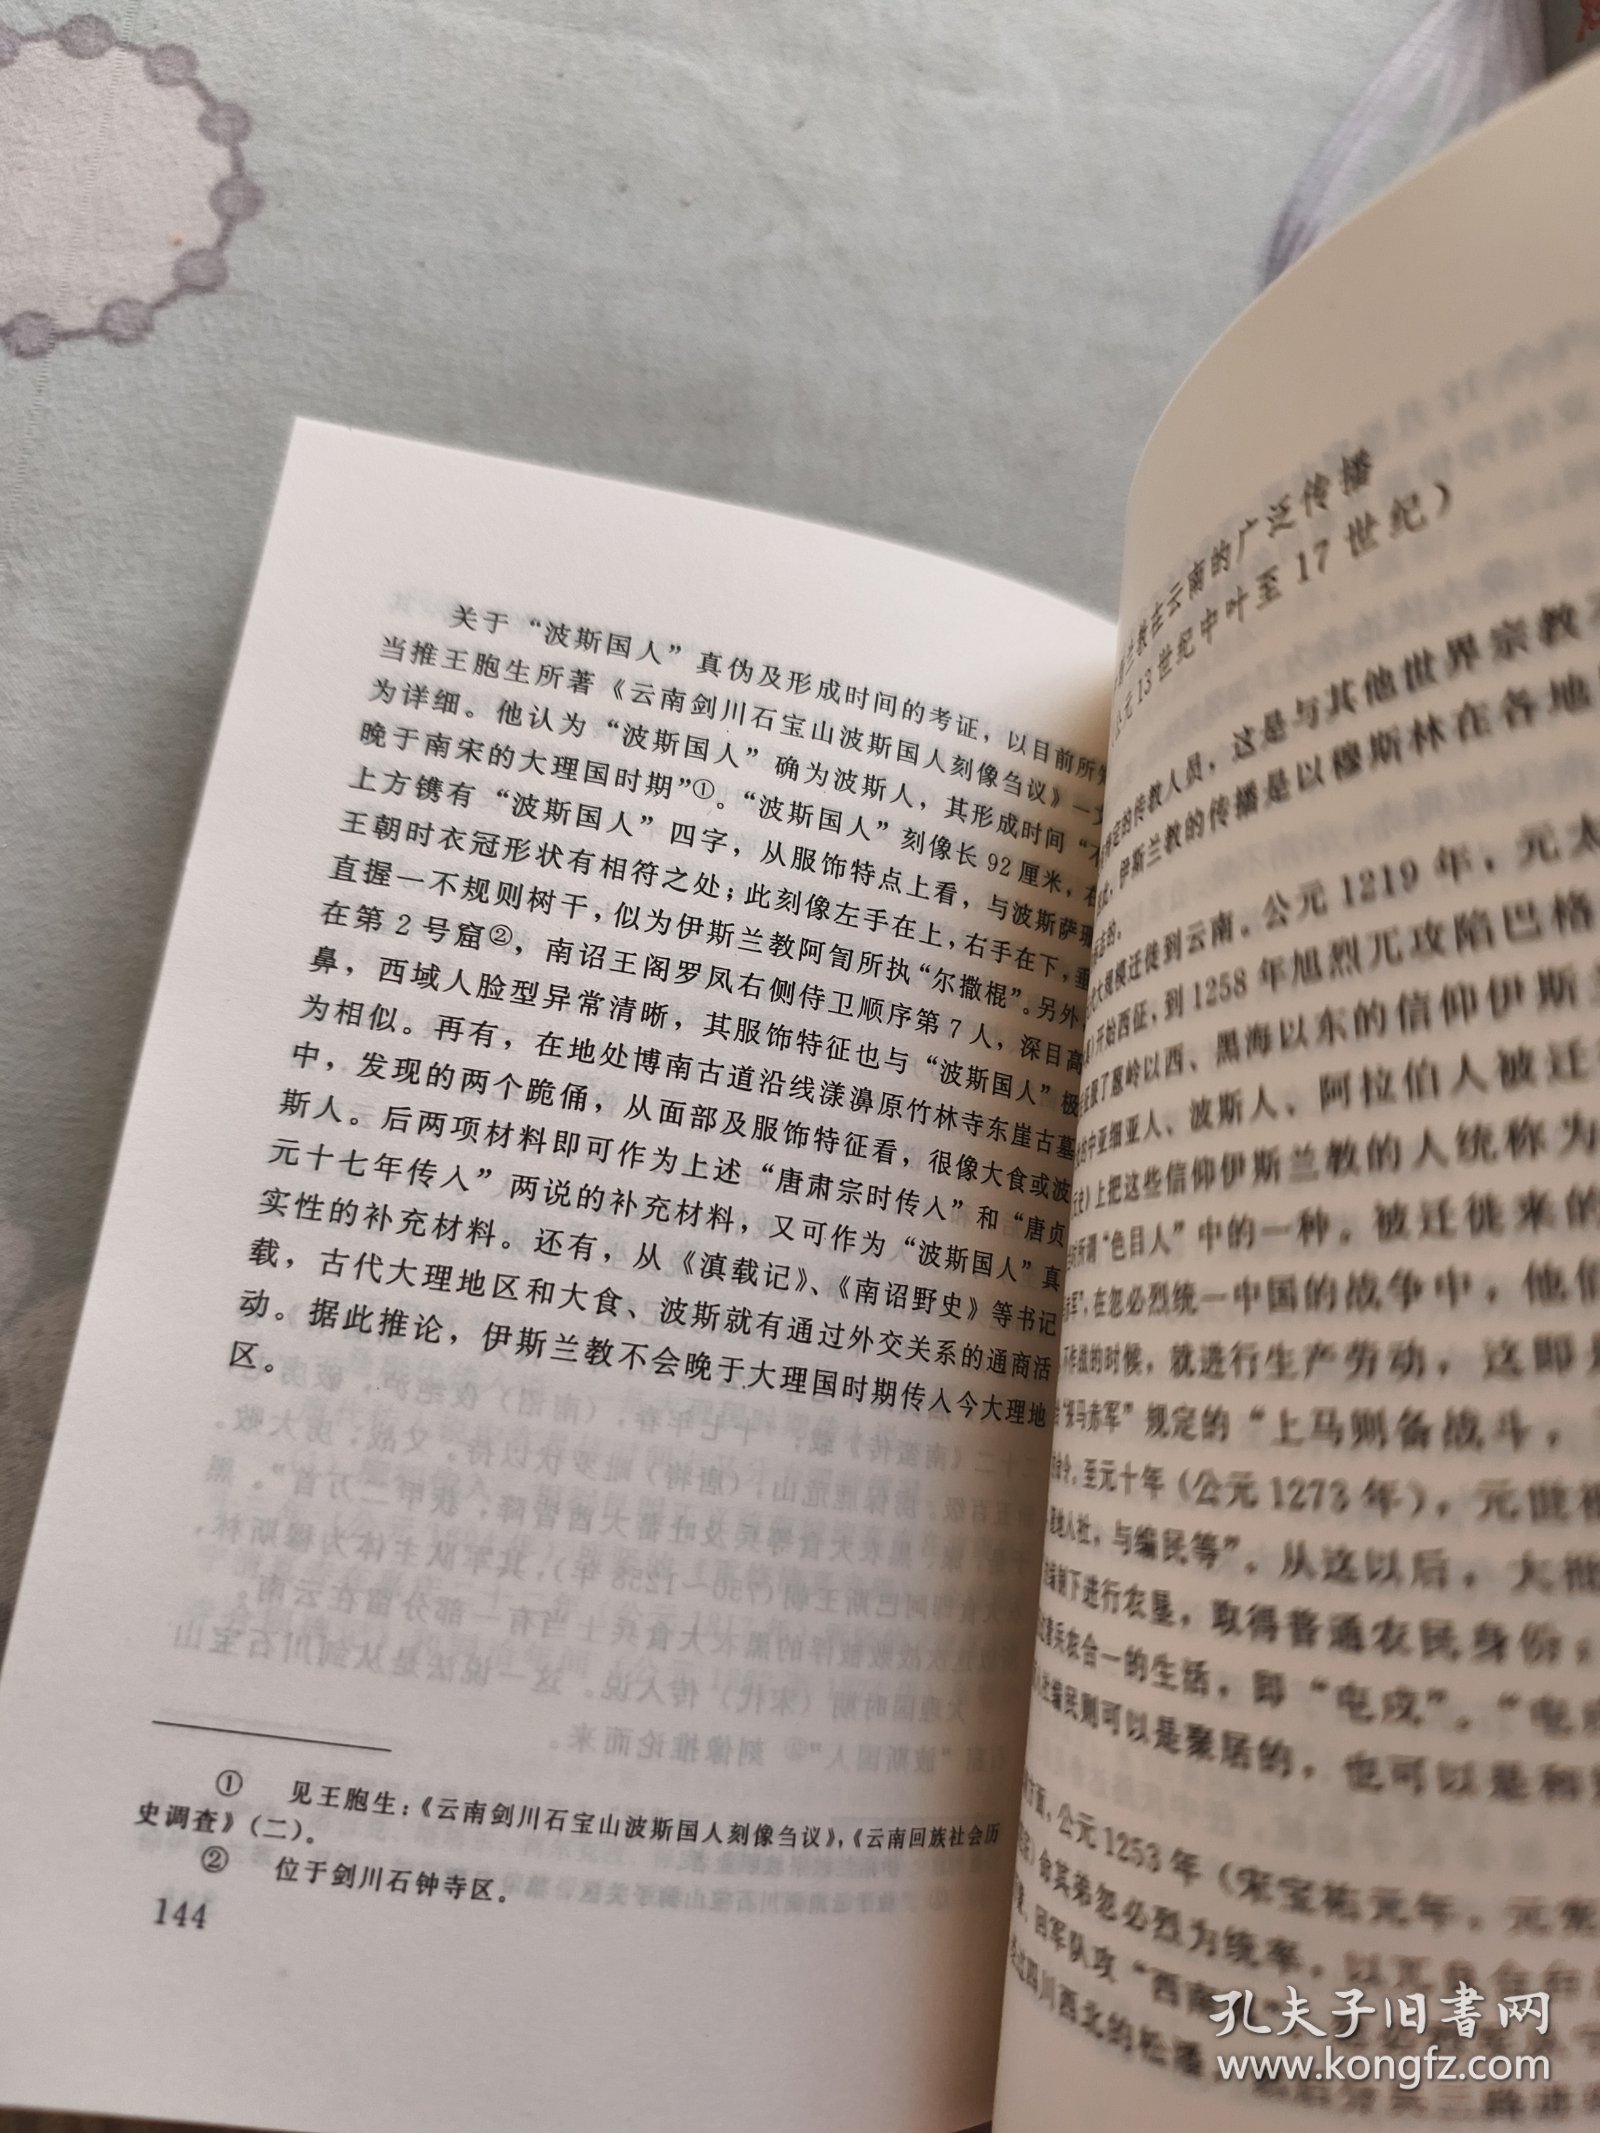 关于“波斯国人”真伪及形成时间的考证，以目前所知
当推王胞生所著《云南剑川石宝山波斯国人刻像刍议》一文
为详细。他认为“波斯国人”确为波斯人，其形成时间“不
晚于南宋的大理国时期”①。“波斯国人”刻像长92厘米，在
上方镌有“波斯国人”四字，从服饰特点上看，与波斯萨珊
王朝时衣冠形状有相符之处；此刻像左手在上，右手在下，垂
直握一不规则树干，似为伊斯兰教阿訇所执“尔撒棍”。另外，
在第2号窟②，南诏王阁罗凤右侧侍卫顺序第7人，深目高
鼻，西域人脸型异常清晰，其服饰特征也与“波斯国人”极
为相似。再有，在地处博南古道沿线漾濞原竹林寺东崖古墓
中，发现的两个跪俑，从面部及服饰特征看，很像大食或波
斯人。后两项材料即可作为上述“唐肃宗时传入”和“唐贞
元十七年传入”两说的补充材料，又可作为“波斯国人”真
实性的补充材料。还有，从《滇载记》、《南诏野史》等书记
载，古代大理地区和大食、波斯就有通过外交关系的通商活
动。据此推论，伊斯兰教不会晚于大理国时期传入今大理地
区。
① 见王胞生：《云南剑川石宝山波斯国人刻像刍议》，《云南回族社会历
史调查》（二）。
② 位于剑川石钟寺区。
144
兰教在云南的广泛传播
元13世纪中叶至17世纪）
定的传教人员，这是与其他世界宗教
伊斯兰教的传播是以穆斯林在各地
大规模迁徙到云南。公元1219年，元太
开始西征，到1258年旭烈兀攻陷巴格
了葱岭以西、黑海以东的信仰伊斯
中亚细亚人、波斯人、阿拉伯人被迁
上把这些信仰伊斯兰教的人统称为
所谓“色目人”中的一种。被迁徙来的
在忽必烈统一中国的战争中，他们
作战的时候，就进行生产劳动，这即是
规定的“上马则备战斗，
至元十年（公元1273年），元世祖
地入社，与编民等”。从这以后，大批
下进行农垦，取得普通农民身份，
兵农合一的生活，即“屯戍”。“屯戍
编民则可以是聚居的，也可以是和
方面，公元1253年（宋宝祐元年，元宪
命其弟忽必烈为统率，以兀良合台
回军队攻“西南
四川西北的松潘
孔夫子旧书网
www.kongfz.com